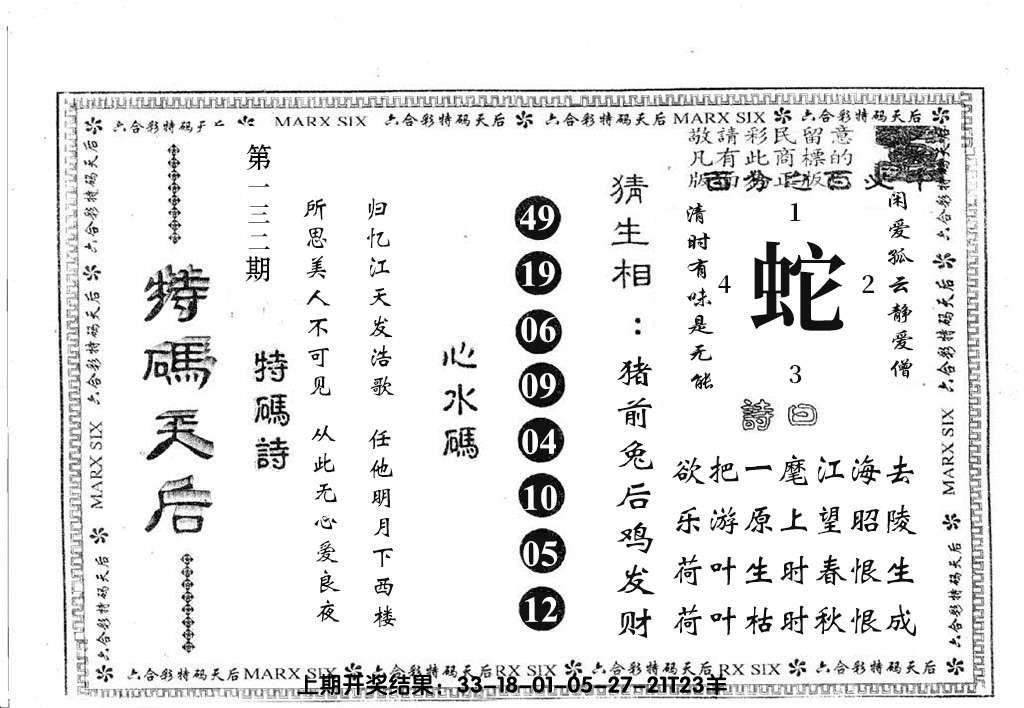 六合彩特码天后 MARX SIX 六合彩特码天后 六合彩特码天后 MARX SIX 六合彩特码天后
敬請彩民留意
凡有此商標的
版面为正版
猜生相：猪前兔后鸡发财
闲爱孤云静爱僧
清时有味是无能
1
2
3
4
蛇
詩曰
欲把一麾江海去
乐游原上望昭陵
荷叶生时春恨生
荷叶枯时秋恨成
心水碼
49
19
06
09
04
10
05
12
归忆江天发浩歌 任他明月下西楼
所思美人不可见 从此无心爱良夜
第一三二期
特碼詩
特碼天后
六合彩特码天后 六合彩特码天后 MARX SIX 六合彩特码天后
六合彩特码天后 六合彩特码天后 MARX SIX 六合彩特码天后
六合彩特码天后 MARX SIX 六合彩特码天后 RX SIX 六合彩特码天后 RX SIX 六合彩特码天后
上期开奖结果：33-18-01-05-27-21T23羊